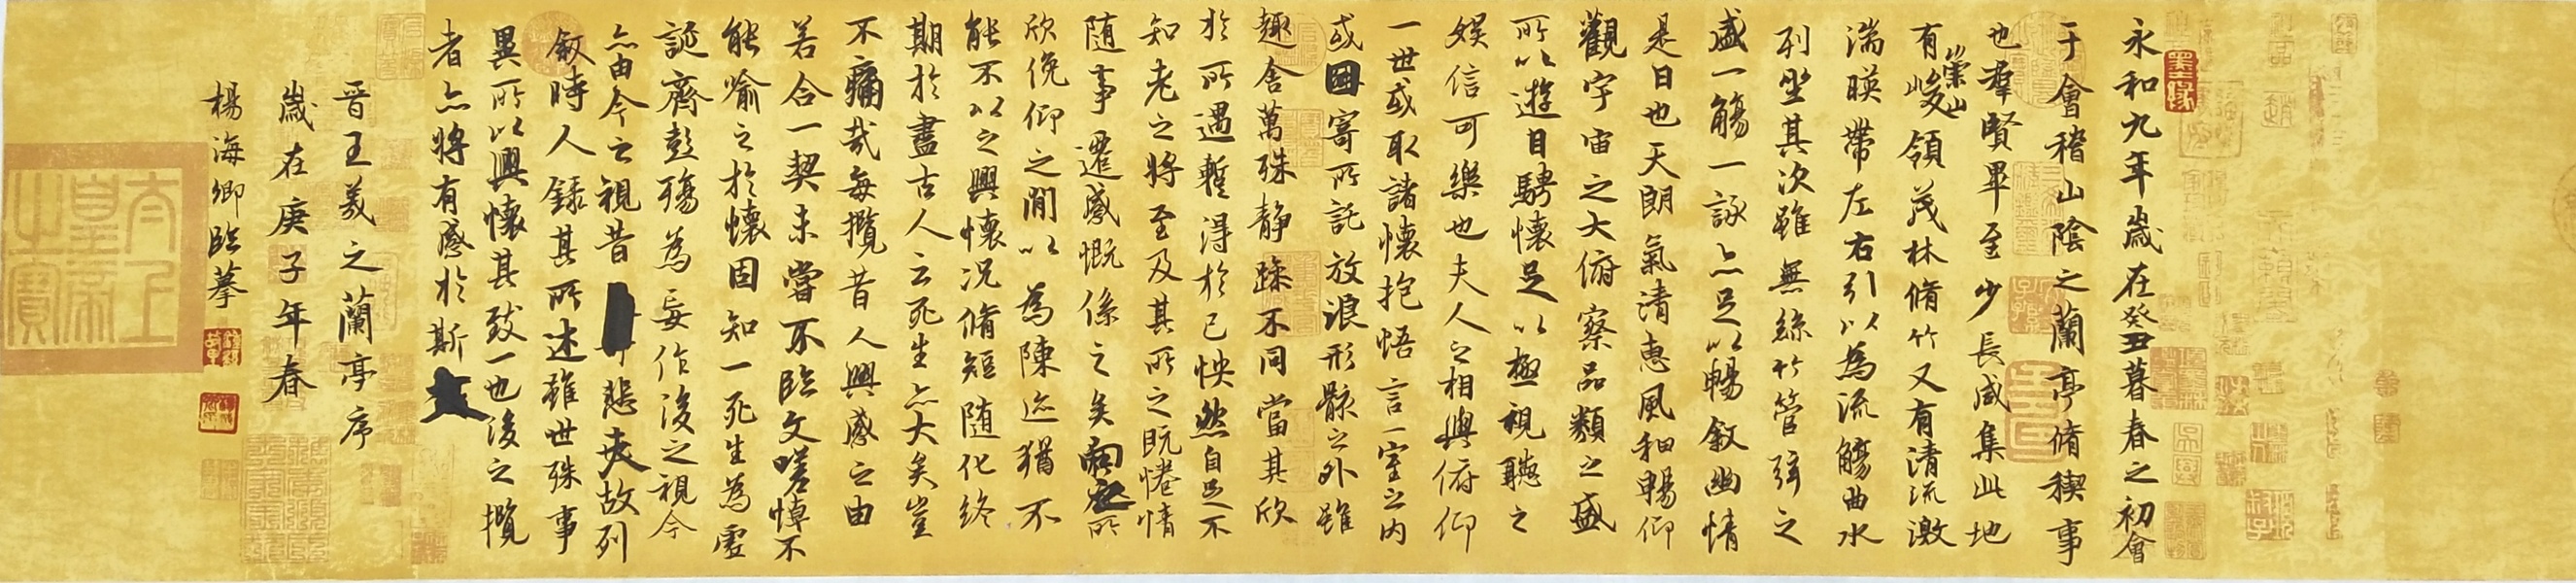 永和九年歲在癸丑暮春之初會
于會稽山陰之蘭亭脩稧事
也羣賢畢至少長咸集此地
有崇山峻領茂林脩竹又有清流激
湍暎帶左右引以為流觴曲水
列坐其次雖無絲竹管弦之
盛一觴一詠亦足以暢敘幽情
是日也天朗氣清惠風和暢仰
觀宇宙之大俯察品類之盛
所以遊目騁懷足以極視聽之
娛信可樂也夫人之相與俯仰
一世或取諸懷抱悟言一室之內
或因寄所託放浪形骸之外雖
趣舍萬殊靜躁不同當其欣
於所遇暫得於己怏然自足不
知老之將至及其所之既惓情
隨事遷感慨係之矣向之所
欣俛仰之閒以為陳迹猶不
能不以之興懷況脩短隨化終
期於盡古人云死生亦大矣豈
不痛哉每攬昔人興感之由
若合一契未嘗不臨文嗟悼不
能喻之於懷固知一死生為虛
誕齊彭殤為妄作後之視今
亦由今之視昔悲夫故列
敘時人錄其所述雖世殊事
異所以興懷其致一也後之攬
者亦將有感於斯文
晉王羲之蘭亭序
歲在庚子年春
楊海卿臨摹
太上皇帝之寶
墨緣